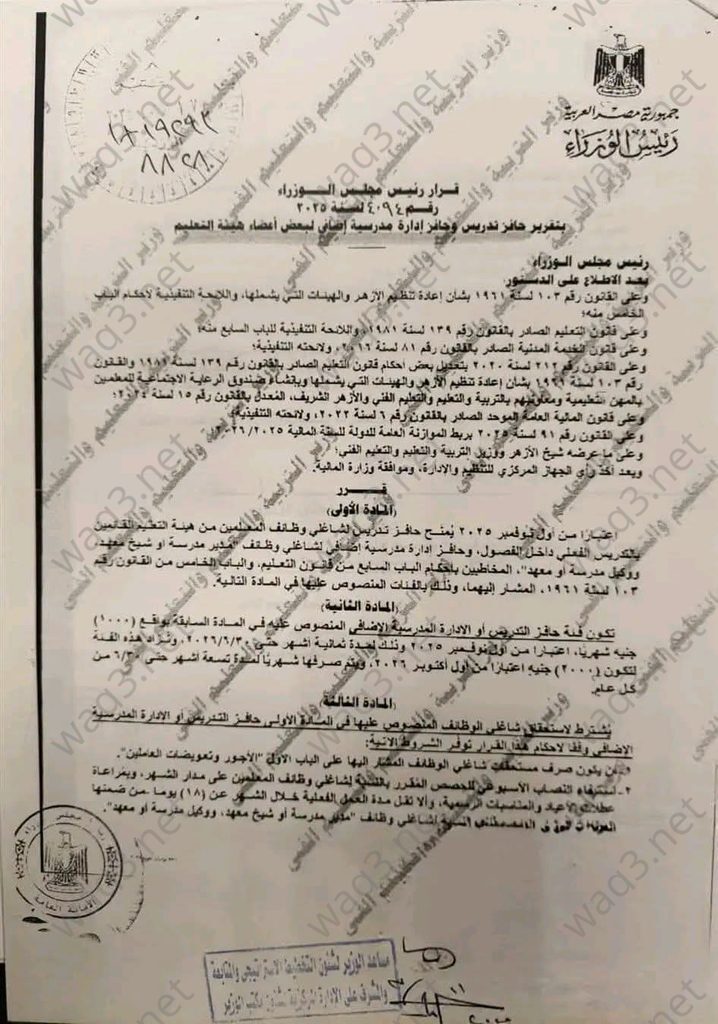 جمهورية مصر العربية
رئيس الوزراء
١٨١٩٢٩٣
٨٨٢٨
قرار رئيس مجلس الـوزراء
رقم ٤٠٩٤ لسنة ٢٠٢٥
بتقرير حافز تدريس وحافز إدارة مدرسية إضافي لبعض أعضاء هيئة التعليم
رئيس مجلس الوزراء
بعد الاطلاع على الدستور
وعلى القانون رقم ١٠٣ لسنة ١٩٦١ بشأن إعادة تنظيم الأزهر والهيئات التي يشملها، واللائحة التنفيذية لأحكام الباب
الخامس منه؛
وعلى قانون التعليم الصادر بالقانون رقم ١٣٩ لسنة ١٩٨١، واللائحة التنفيذية للباب السابع منه؛
وعلى قانون الخدمة المدنية الصادر بالقانون رقم ٨١ لسنة ٢٠١٦، ولائحته التنفيذية؛
وعلى القانون رقم ٢١٢ لسنة ٢٠٢٠ بتعديل بعض أحكام قانون التعليم الصادر بالقانون رقم ١٣٩ لسنة ١٩٨١ والقانون
رقم ١٠٣ لسنة ١٩٦١ بشأن إعادة تنظيم الأزهر والهيئات التي يشملها وبإنشاء صندوق الرعاية الاجتماعية للمعلمين
بالمهن التعليمية ومعاونيهم بالتربية والتعليم والتعليم الفني والأزهر الشريف، المُعدل بالقانون رقم ١٥ لسنة ٢٠٢٤؛
وعلى قانون المالية العامة الموحد الصادر بالقانون رقم ٦ لسنة ٢٠٢٢، ولائحته التنفيذية؛
وعلى القانون رقم ٩١ لسنة ٢٠٢٥ بربط الموازنة العامة للدولة للسنة المالية ٢٠٢٦/٢٠٢٥؛
وعلى ما عرضه شيخ الأزهر ووزير التربية والتعليم والتعليم الفني؛
وبعد أخذ رأي الجهاز المركزي للتنظيم والإدارة، وموافقة وزارة المالية.
قــرر
(المادة الأولى)
اعتبارا من أول نوفمبر ٢٠٢٥ يُمنح حافز تدريس لشاغلي وظائف المعلمين من هيئة التعليم القائمين
بالتدريس الفعلي داخل الفصول، وحافز إدارة مدرسية إضافي لشاغلي وظائف "مدير مدرسة أو شيخ معهد،
ووكيل مدرسة أو معهد"، المخاطبين بأحكام الباب السابع من قانون التعليم، والباب الخامس من القانون رقم
١٠٣ لسنة ١٩٦١، المشار إليهما، وذلك بالفئات المنصوص عليها في المادة التالية.
(المادة الثانية)
تكون فئة حافز التدريس أو الادارة المدرسية الإضافي المنصوص عليه في المادة السابقة بواقع (١٠٠٠)
جنيه شهريًا، اعتبارا من أول نوفمبر ٢٠٢٥ وذلك لمدة ثمانية أشهر حتى ٢٠٢٦/٦/٣٠، وتزاد هذه الفئة
لتكون (٢٠٠٠) جنيه اعتبارا من أول أكتوبر ٢٠٢٦، ويتم صرفها شهريًا لمدة تسعة أشهر حتى ٦/٣٠ من
كل عام.
(المادة الثالثة)
يُشترط لاستحقاق شاغلي الوظائف المنصوص عليها في المادة الأولى حافز التدريس أو الادارة المدرسية
الإضافي وفقا لأحكام هذا القرار توفر الشروط الآتية:
١- أن يكون صرف مستحقات شاغلي الوظائف المشار إليها على الباب الأول "الأجور وتعويضات العاملين".
٢- استيفاء النصاب الأسبوعي للحصص المقرر بالنسبة لشاغلي وظائف المعلمين على مدار الشهر، وبمراعاة
عطلات الأعياد والمناسبات الرسمية، وألا تقل مدة العمل الفعلية خلال الشهر عن (١٨) يوما من ضمنها
لشاغلي وظائف "مدير مدرسة أو شيخ معهد، ووكيل مدرسة أو معهد".
الأمانة العامة
مساعد الوزير لشئون التخطيط الاستراتيجي والمتابعة
والمشرف على الإدارة المركزية لشئون مكتب الوزير
وزير التربية والتعليم والتعليم الفني
waq3.net